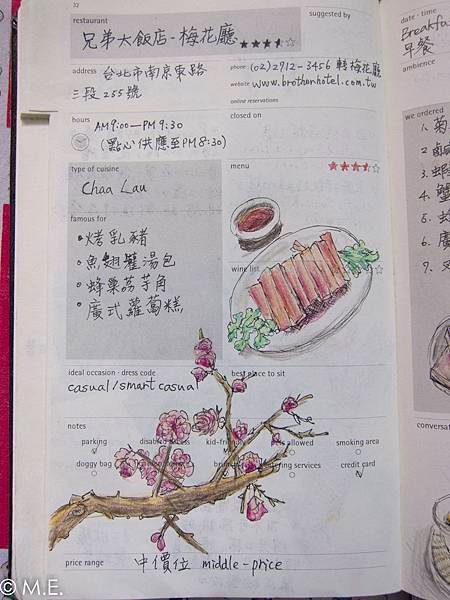 32
restaurant
suggested by
兄弟大飯店-梅花廳
address 台北市南京東路
三段255號
phone (02)2712-3456 轉梅花廳
website www.brotherhotel.com.tw
online reservations
hours
AM9:00—PM9:30
(點心供應至PM8:30)
closed on
type of cuisine
Chaa Lau
menu
famous for
•烤乳豬
•魚翅灌湯包
•蜂巢荔芋角
•廣式蘿蔔糕
wine list
ideal occasion · dress code
casual/smart casual
best place to sit
notes
parking
disabled access
kid-friendly
pets allowed
smoking area
doggy bag
catering services
credit card
price range
中價位 middle-price
date · time
Breakfa
早餐
ambience
we ordered
1. 菊
2. 鹹
3. 蝦
4. 蟹
5.
6. 廣
7.
conversat
© M.E.